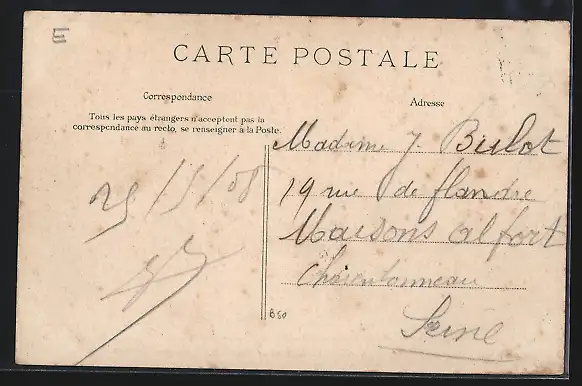 E
CARTE POSTALE
Correspondance
Adresse
Tous les pays étrangers n'acceptent pas la
correspondance au recto, se renseigner à la Poste.
Madame J. Bulot
19 rue de flandre
Maisons alfort
Charentonneau
Seine
25/5/08
B50